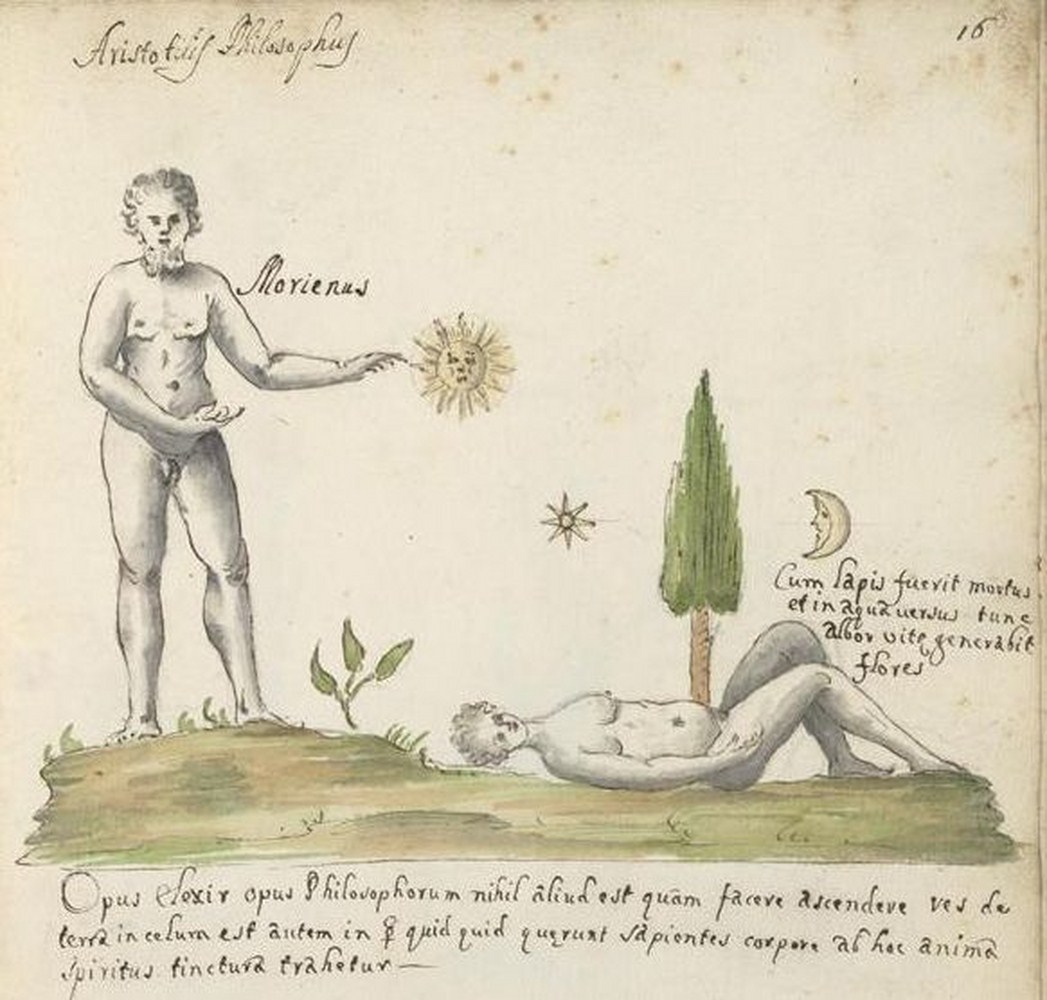 Aristotilis Philosophus
16
Morienus
Cum lapis fuerit mortus
et in aqua versus tunc
albor vite generabit
flores
Opus Elexir opus Philosophorum nihil aliud est quam facere ascendere res de
terra in celum est autem in ☿ quid quid querunt sapientes corpore ab hoc anima
spiritus tinctura trahetur —